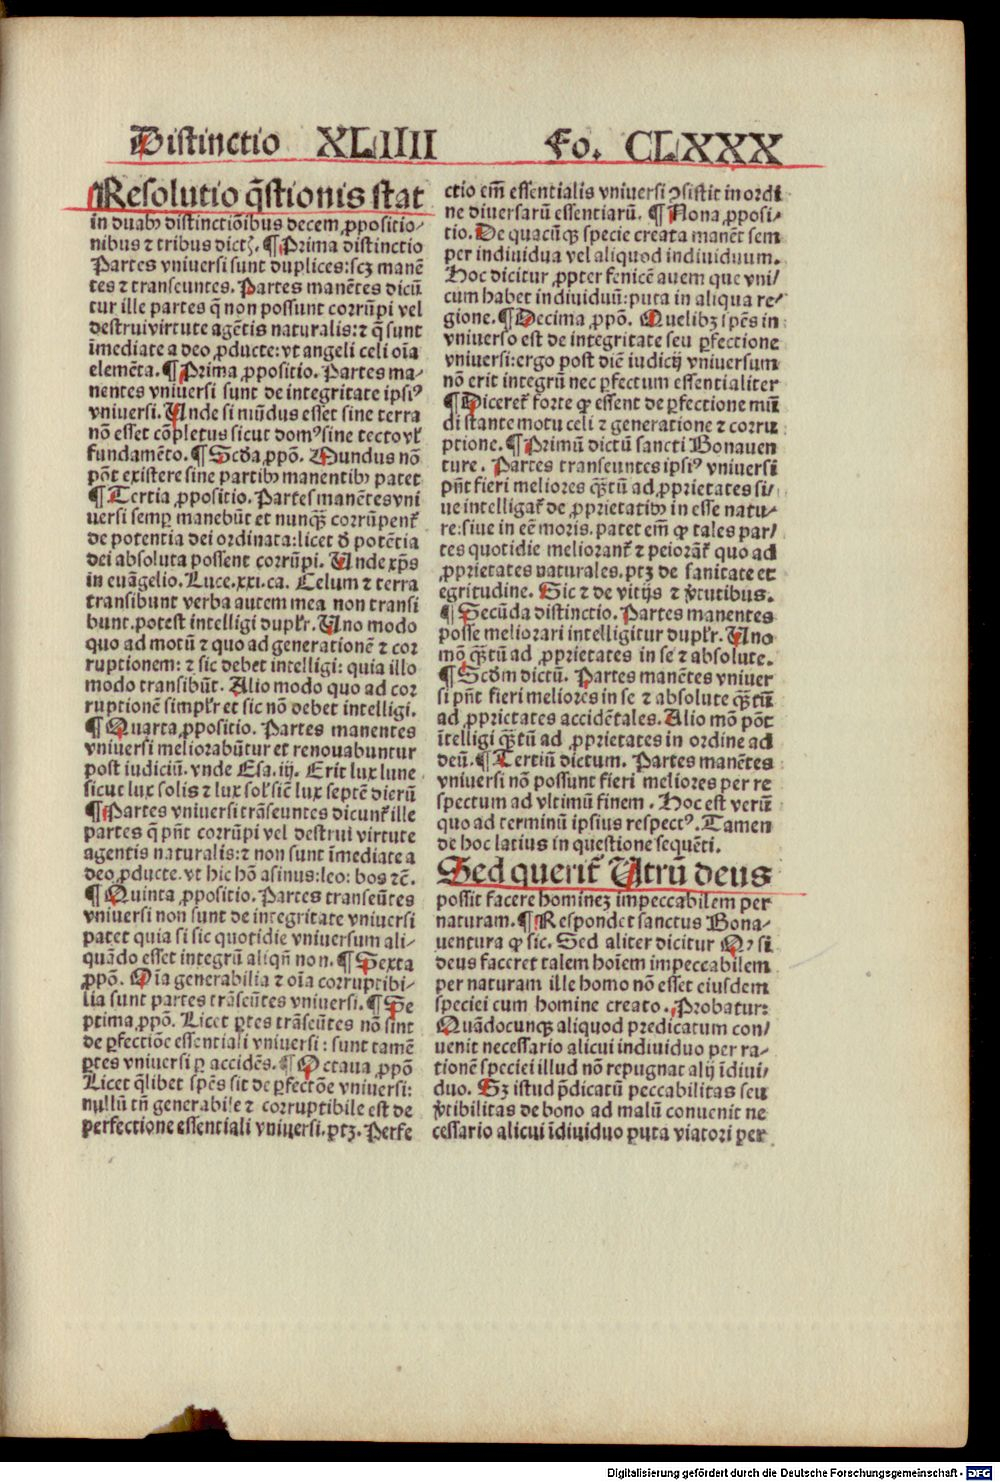 Distinctio XLIIII Fo. CLXXX
¶Resolutio q̄stionis stat
in duabꝫ distinctiōibus decem ꝓpositio⸗
nibus ⁊ tribus dictꝭ. ¶Prima distinctio
Partes vniuersi sunt duplices: scꝫ manē
tes ⁊ transeuntes. Partes manētes dicū
tur ille partes q̄ non possunt corrūpi vel
destrui virtute agētis naturalis: ⁊ q̄ sunt
īmediate a deo ꝓducte: vt angeli celi oīa
elemēta. ¶Prima ꝓpositio. Partes ma⸗
nentes vniuersi sunt de integritate ipsiꝰ
vniuersi. Unde si mūdus esset sine terra
nō esset cōpletus sicut domꝰ sine tecto vł
fundamēto. ¶Scd̄a ꝓpō. Mundus nō
pōt existere sine partibꝫ manentibꝫ patet
¶Tertia ꝓpositio. Partes manētes vni
uersi semꝑ manebūt et nunqꝫ̄ corrūpent᷑
de potentia dei ordinata: licet d̄ potētia
dei absoluta possent corrūpi. Unde xp̄s
in euāgelio. Luce. xxi. ca. Celum ⁊ terra
transibunt verba autem mea non transi
bunt. potest intelligi dupłr. Uno modo
quo ad motū ⁊ quo ad generationē ⁊ cor
ruptionem: ⁊ sic debet intelligi: quia illo
modo transibūt. Alio modo quo ad cor
ruptionē simpłr et sic nō debet intelligi.
¶Quarta ꝓpositio. Partes manentes
vniuersi meliorabūtur et renouabuntur
post iudiciū. vnde Esa. iij. Erit lux lune
sicut lux solis ⁊ lux soł sicē lux septē dierū
¶Partes vniuersi trāseuntes dicunt᷑ ille
partes q̄ pn̄t corrūpi vel destrui virtute
agentis naturalis: ⁊ non sunt īmediate a
deo ꝓducte. vt hic hō asinus: leo: bos ⁊c̄.
¶Quinta ꝓpositio. Partes transeūtes
vniuersi non sunt de integritate vniuersi
patet quia si sic quotidie vniuersum ali⸗
quādo esset integrū aliqn̄ non. ¶Sexta
ꝓpō. Oīa generabilia ⁊ oīa corruptibi⸗
lia sunt partes trāseūtes vniuersi. ¶Se
ptima ꝓpō. Licet ꝑtes trāseūtes nō sint
de ꝑfectiōe essentiali vniuersi: sunt tamē
ꝑtes vniuersi ꝑ accidēs. ¶Octaua ꝓpō
Licet q̄libet spēs sit de ꝑfectōe vniuersi:
nullū tn̄ generabile ⁊ corruptibile est de
perfectione essentiali vniuersi. ꝑtꝫ. Perfe
ctio em̄ essentialis vniuersi ↄsistit in ordi
ne diuersarū essentiarū. ¶Nona ꝓposi⸗
tio. De quacūqꝫ specie creata manēt sem
per indiuidua vel aliquod indiuiduum.
Hoc dicitur ꝓpter fenicē auem que vni⸗
cum habet indiuiduū: puta in aliqua re⸗
gione. ¶Decima ꝓpō. Quelibꝫ spēs in
vniuerso est de integritate seu ꝑfectione
vniuersi: ergo post diē iudicij vniuersum
nō erit integrū nec ꝑfectum essentialiter
¶Diceret᷑ forte ꝙ essent de ꝑfectione mū
di stante motu celi ⁊ generatione ⁊ corru
ptione. ¶Primū dictū sancti Bonauen
ture. Partes transeuntes ipsiꝰ vniuersi
pn̄t fieri meliores qꝫ̄tū ad ꝓprietates si⸗
ue intelligat᷑ de ꝓprietatibꝫ in esse natu⸗
re: siue in eē moris. patet em̄ ꝙ tales par⸗
tes quotidie meliorant᷑ ⁊ peiorāt᷑ quo ad
ꝓprietates naturales. ptꝫ de sanitate et
egritudine. Sic ⁊ de vitijs ⁊ v̄tutibus.
¶Secūda distinctio. Partes manentes
posse meliorari intelligitur dupłr. Uno
mō qꝫ̄tū ad ꝓprietates in se ⁊ absolute.
¶Scd̄m dictū. Partes manētes vniuer
si pn̄t fieri meliores in se ⁊ absolute qꝫ̄tū
ad ꝓprietates accidētales. Alio mō pōt
ītelligi qꝫ̄tū ad ꝓprietates in ordine ad
deū. ¶Tertiū dictum. Partes manētes
vniuersi nō possunt fieri meliores per re
spectum ad vltimū finem. Hoc est verū
quo ad terminū ipsius respectꝰ. Tamen
de hoc latius in questione sequēti.
Sed querit᷑ Utrū deus
possit facere homineꝫ impeccabilem per
naturam. ¶Respondet sanctus Bona⸗
uentura ꝙ sic. Sed aliter dicitur Qꝫ si
deus faceret talem hoīem impeccabilem
per naturam ille homo nō esset eiusdem
speciei cum homine creato. Probatur:
Quādocunqꝫ aliquod predicatum con⸗
uenit necessario alicui indiuiduo per ra⸗
tionē speciei illud nō repugnat alij īdiui⸗
duo. Sꝫ istud p̄dicatū peccabilitas seu
v̄tibilitas de bono ad malū conuenit ne
cessario alicui īdiuiduo puta viatori per
Digitalisierung gefördert durch die Deutsche Forschungsgemeinschaft - DFG